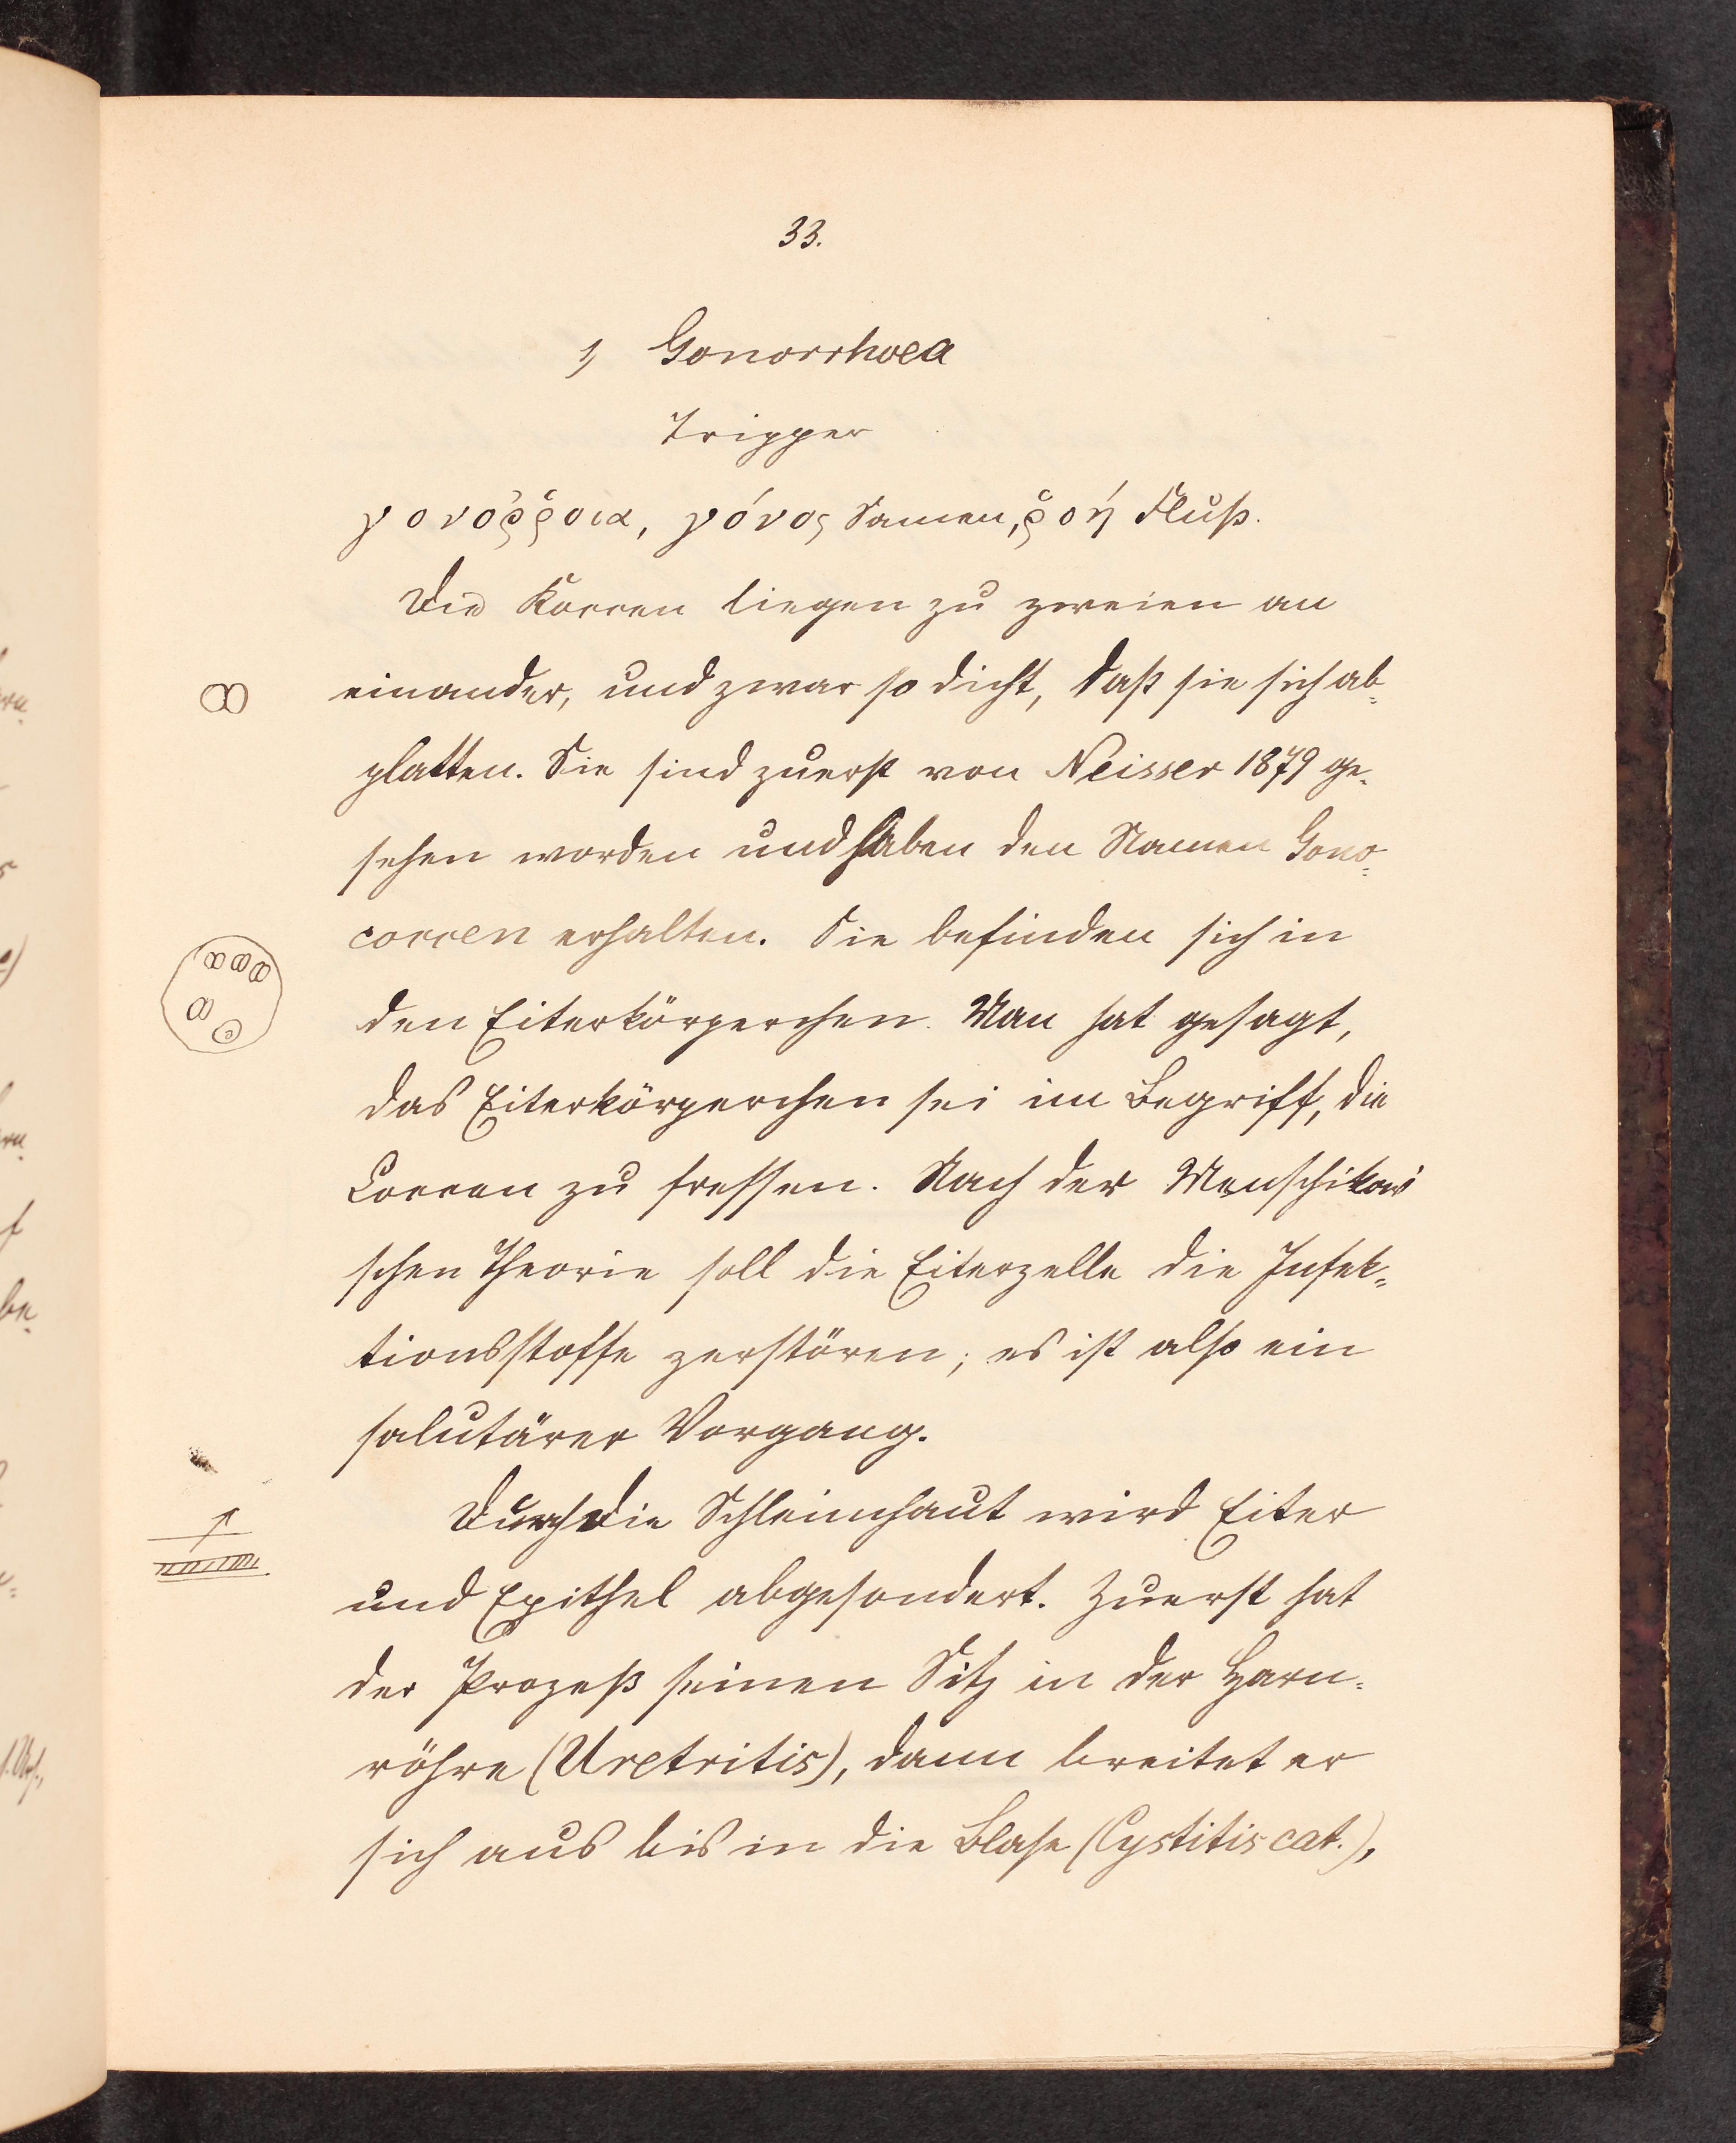 33.
1, Gonorrhoea
Tripper
γονόῤῥοια, γόνος Samen, ῥοή Fluß.
Die Koccen liegen zu zweien an
einander, und zwar so dicht, daß sie sich ab-
platten. Sie sind zuerst von Neisser 1879 ge-
sehen worden und haben den Namen Gono-
coccen erhalten. Sie befinden sich in
den Eiterkörperchen. Man hat gesagt,
das Eiterkörperchen sei im Begriff, die
Coccen zu fressen. Nach der Menschikowi
schen Theorie soll die Eiterzelle die Infek-
tionsstoffe zerstören; es ist also ein
salutärer Vorgang.
Durch die Schleimhaut wird Eiter
und Epithel abgesondert. Zuerst hat
der Prozeß seinen Sitz in der Harn-
röhre (Uretritis), dann breitet er
sich aus bis in die Blase (Cystitis cat.),